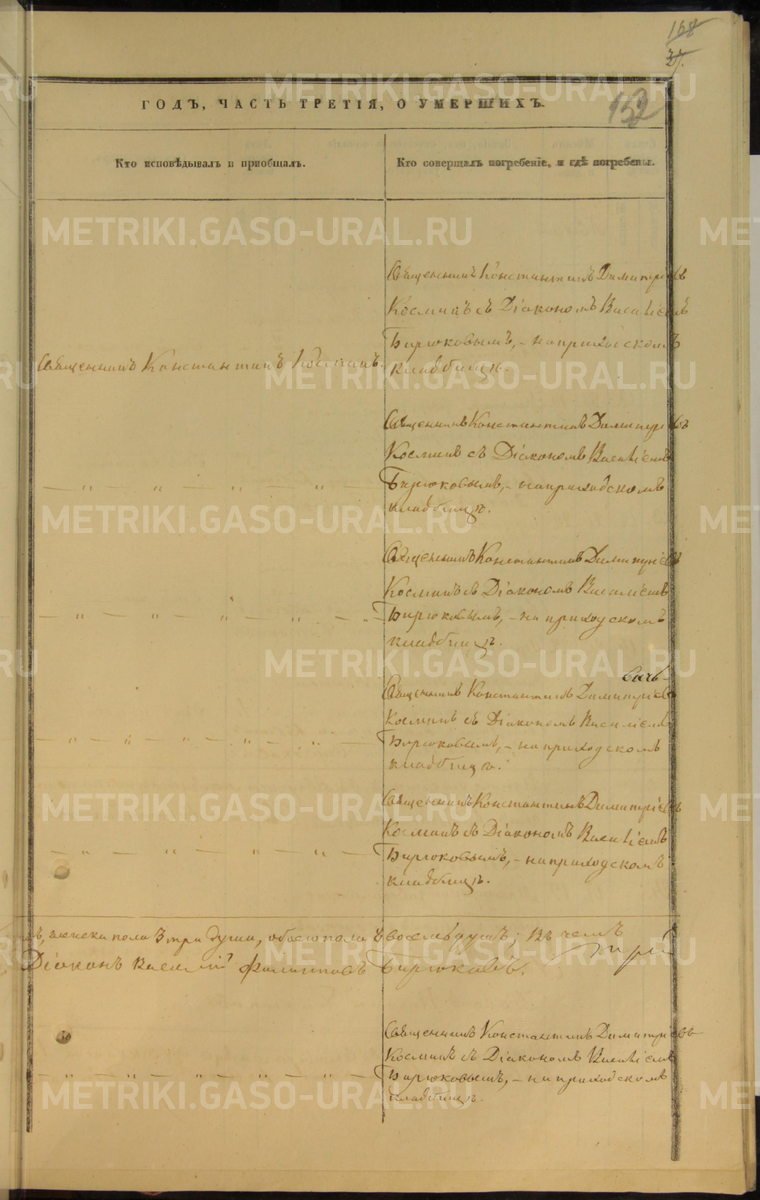 168
27.
152
ГОДЪ, ЧАСТЬ ТРЕТІЯ, О УМЕРШИХЪ.
Кто исповѣдывалъ и пріобщалъ.
Кто совершалъ погребеніе, и гдѣ погребены.
Священникъ Константинъ Димитріевъ
Косминъ съ Діакономъ Василіемъ
Бирюковымъ, - на приходскомъ
кладбищѣ.
Священникъ Константинъ Косминъ.
Священникъ Константинъ Димитріевъ
Косминъ съ Діакономъ Василіемъ
— „ — „ — „ — „ —
Бирюковымъ, - на приходскомъ
кладбищѣ.
Священникъ Константинъ Димитріевъ
Косминъ съ Діакономъ Василіемъ
— „ — „ — „ — „ —
Бирюковымъ, - на приходскомъ
кладбищѣ.
Священникъ Константинъ Димитріевъ
Косминъ съ Діакономъ Василіемъ
— „ — „ — „ — „ —
Бирюковымъ, - на приходскомъ
кладбищѣ.
Священникъ Константинъ Димитріевъ
Косминъ съ Діакономъ Василіемъ
— „ — „ — „ — „ —
Бирюковымъ, - на приходскомъ
кладбищѣ.
женска пола 3 три души, обоего пола 8 восемь душъ; въ чемъ
Діаконъ Василій Филипповъ Бирюковъ.
Священникъ Константинъ Димитріевъ
Косминъ съ Діакономъ Василіемъ
— „ — „ — „ — „ —
Бирюковымъ, - на приходскомъ
кладбищѣ.
METRIKI.GASO-URAL.RU